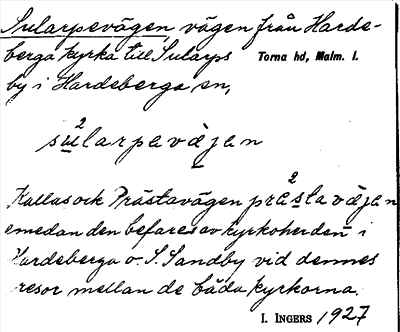 Sularpevägen vägen från Harde-
berga kyrka till Sularps Torna hd, Malm. l.
by i Hardeberga sn,
sularpavägan
Kallas ock Prästavägen prästavägan
emedan den befares av kyrkoherden i
Hardeberga o. S. Sandby vid dennes
resor mellan de båda kyrkorna.
I. INGERS 1927